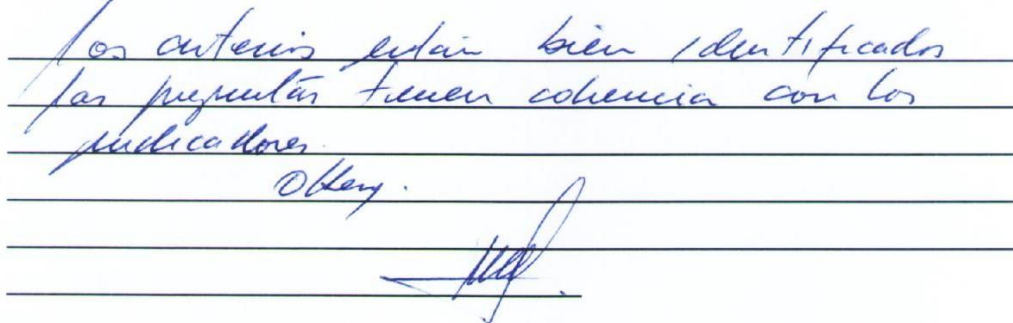 los criterios están bien identificados
las preguntas tienen coherencia con los
indicadores.
Okey.